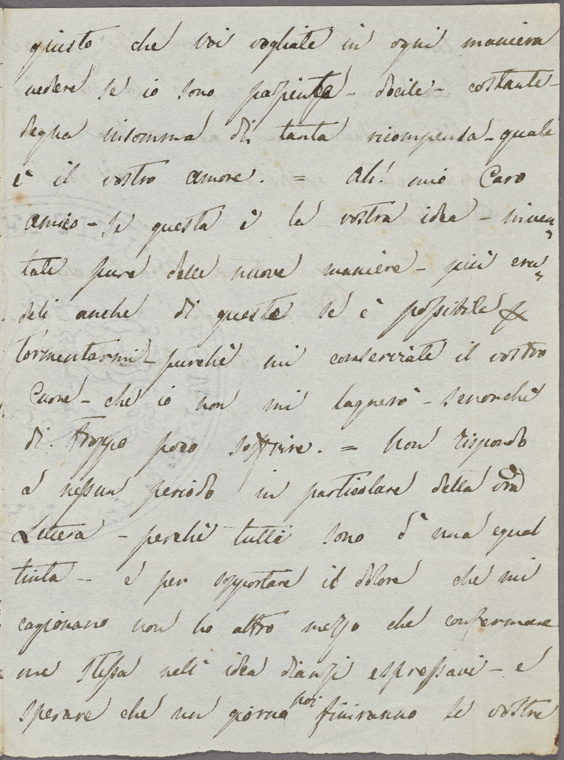 giusto che voi vogliate in ogni maniera
vedere se io sono paziente - docile - costante -
degna insomma di tanta ricompensa - quale
è il vostro amore. = Ah! mio Caro
amico - se questa è la vostra idea - inven
tate pure delle nuove maniere - più cru
deli anche di queste se è possibile
tormentarmi - purchè mi conserviate il vostro
Cuore - che io non mi lagnerò - senonchè
di troppo poco soffrire. = Non rispondo
a nessun periodo in particolare della vra
Lettera - perchè tutti sono d'una egual
tinta - e per sopportare il dolore che mi
cagionano non ho altro mezzo che confermare
me stessa nell' idea dianzi espressavi - e
sperare che un giorno poi finiranno le vostre